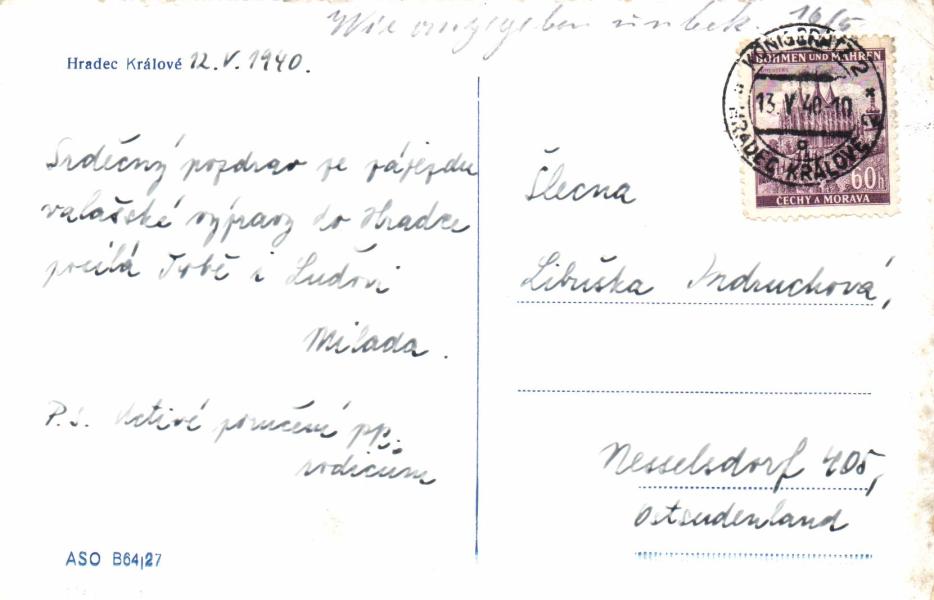 Wie angegeben unbek. 16/5
Hradec Králové 12.V.1940.
Srdečný pozdrav ze zájezdu
valašské výpravy do Hradce
posílá Tobě i Luďovi
Milada.
P.S. Uctivé poručení pp.
rodičům
ASO B64|27
KÖNIGGRÄTZ 2
13.V.40-10
HRADEC KRÁLOVÉ 2
BÖHMEN UND MÄHREN
60h
ČECHY A MORAVA
Slečna
Libuška Indruchová,
Nesselsdorf 405,
Ostsudenland